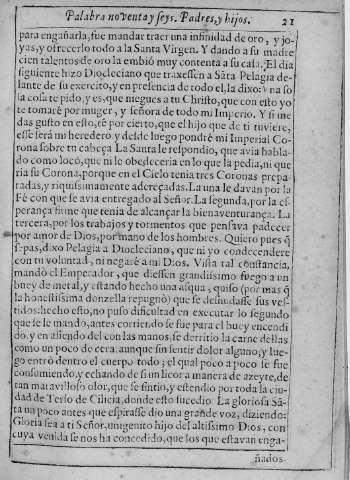 Palabra noventa y seys. Padres, y hijos. 21
para engañarla, fue mandar traer una infinidad de oro, y jo-
yas, y ofrecerlo todo a la Santa Virgen. Y dando a su madre
cien talentos de oro la embió muy contenta a su casa. El dia
siguiente hizo Diocleciano que traxessen a Sãta Pelagia de-
lante de su exercito, y en presencia de todo el, la dixo: Vna so
la cosa te pido, y es, que niegues a tu Christo, que con esto yo
te tomaré por muger, y señora de todo mi Imperio. Y si me
das gusto en esto, sé por cierto, que el hijo que de ti tuviere,
esse será mi heredero y desde luego pondré mi Imperial Co-
rona sobre tu cabeça La Santa le respondio, que avia habla-
do como loco, que ni le obedeceria en lo que la pedia, ni que
ria su Corona, porque en el Cielo tenia tres Coronas prepa-
tadas, y riquissimamente adereçadas. La una le davan por la
Fé con que se avia entregado al Señor. La segunda, por la es-
perança firme que tenia de alcançar la bienaventurança. La
tercera, por los trabajos y tormentos que pensava padecer
por amor de Dios, por mano de los hombres. Quiero pues q̃
sepas, dixo Pelagia a Diocleciano, que ni yo condecendere
con tu voluntad, ni negaré a mi Dios. Vista tal constancia,
mandò el Emperador, que diessen grandissimo fuego a un
buey de metal, y estando hecho una asqua, quiso (por mas q̃
la honestissima donzella repugnò) que se desnudasse sus ves-
tidos: hecho esto, no puso dificultad en executar lo segundo
que se le mandò, antes corriendo se fue para el buey encendi
do, y en assiendo del con las manos, se derritio la carne dellas
como un poco de cera, aunque sin sentir dolor alguno; y lue-
go entrò dentro el cuerpo todo; el qual poco a poco se fue
consumiendo, y echando de sì un licor a manera de azeyte, de
tan maravilloso olor, que se sintio, y estendio por toda la ciu-
dad de Terso de Cilicia, donde esto sucedio La gloriosa Sã-
ta un poco antes que espirasse dio una grande voz, diziendo:
Gloria sea a ti Señor, unigenito hijo del altissimo Dios, con
cuya venida se nos ha concedido, que los que estavan enga-
ñados.